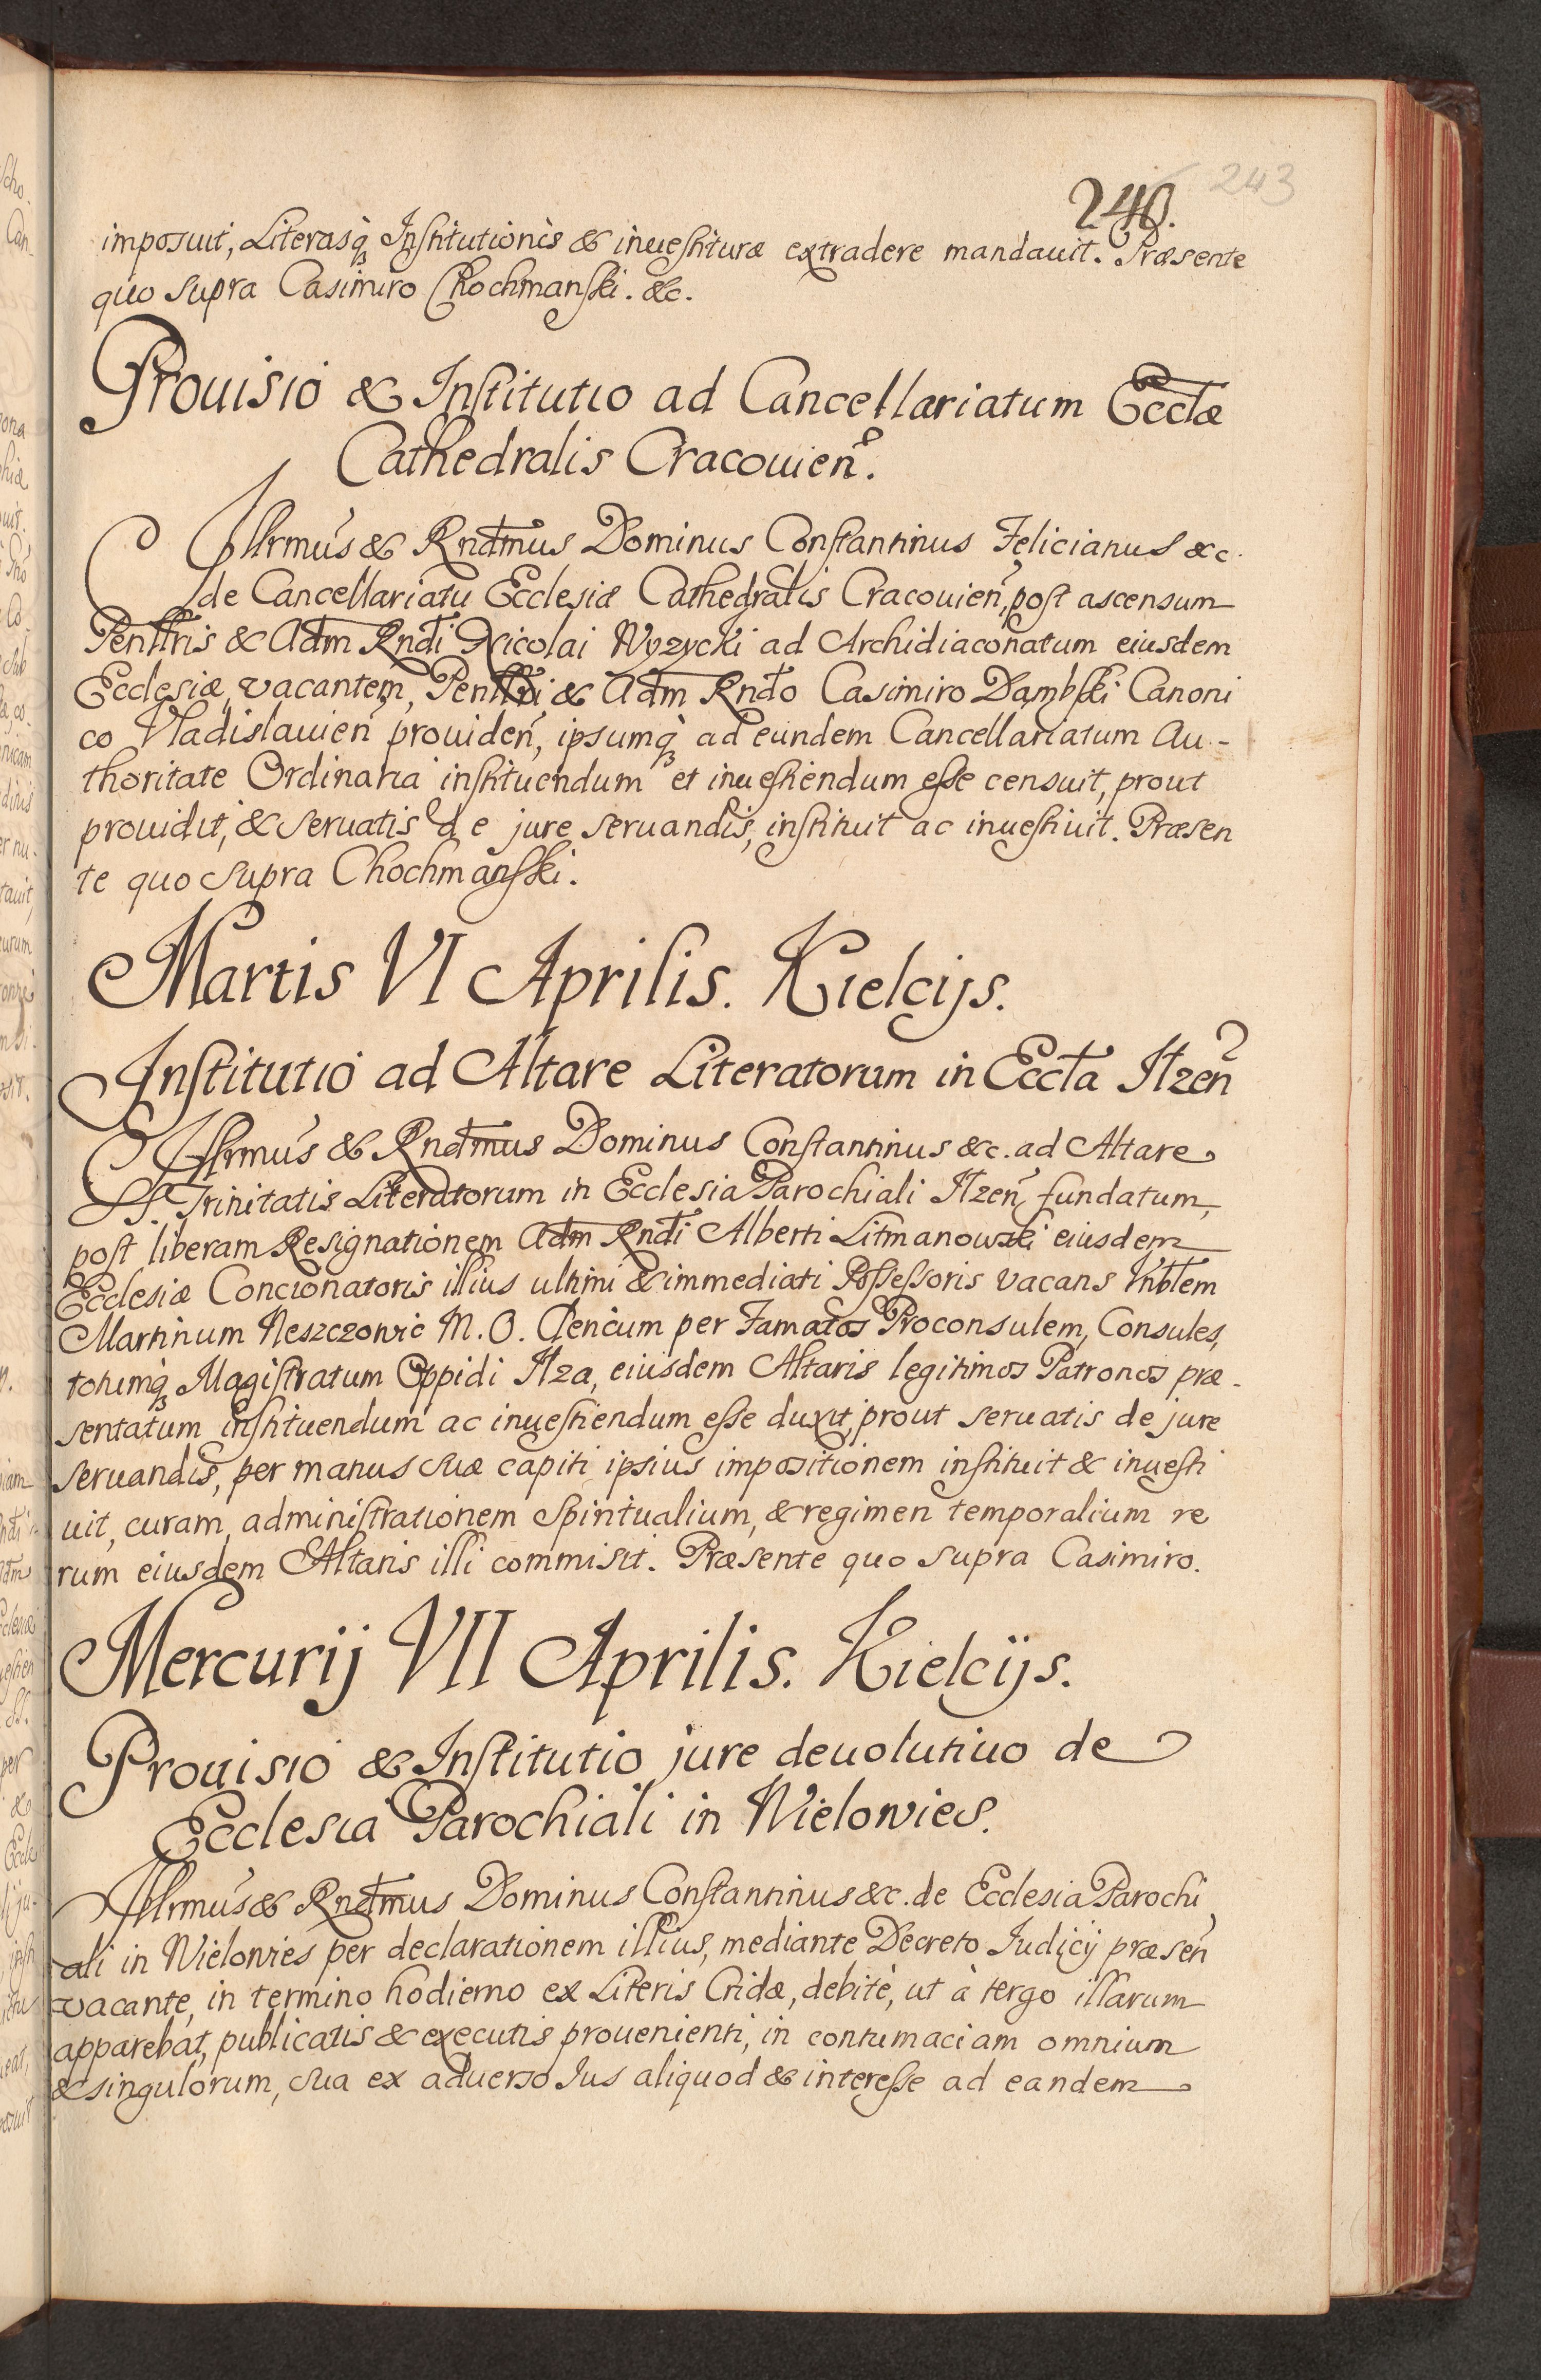 240. 243
imposuit, Literasq; Institutionis & inuestituræ extradere mandauit. Præsente
quo supra Casimiro Chochmanski. &c.
Prouisio & Institutio ad Cancellariatum Ecctæ
Cathedralis Cracouien̄.
Illrmus & Rndmus Dominus Constantinus Felicianus &c.
de Cancellariatu Ecclesiæ Cathedralis Cracouien̄, post ascensum
Penllris & Adm Rndi Nicolai Wyzycki ad Archidiaconatum eiusdem
Ecclesiæ, vacantem, Penllri, & Adm Rndo Casimiro Dąmbski Canoni
co Vladislauien̄ prouiden̄, ipsumq; ad eundem Cancellariatum Au-
thoritate Ordinaria instituendum et inuestiendum esse censuit, prout
prouidit, & seruatis de jure seruandis, instituit ac inuestiuit. Præsen
te quo supra Chochmanski.
Martis VI Aprilis. Kielcijs.
Institutio ad Altare Literatorum in Eccta Ilzen̄
Illrmus & Rndmus Dominus Constantinus &c. ad Altare
SS. Trinitatis Literatorum in Ecclesia Parochiali Ilzen̄ fundatum,
post liberam Resignationem Adm Rndi Alberti Litmanowski eiusdem
Ecclesiæ Concionatoris illius ultimi & immediati Possessoris vacans Vnblem
Martinum Neszczowic M. O. Clericum per Famatos Proconsulem, Consules,
totumq; Magistratum Oppidi Ilza, eiusdem Altaris legitimos Patronos præ-
sentatum instituendum ac inuestiendum esse duxit, prout seruatis de jure
seruandis, per manus suæ capiti ipsius impositionem instituit & inuesti
uit, curam, administrationem Spiritualium, & regimen temporalium re
rum eiusdem Altaris illi commisit. Præsente quo supra Casimiro.
Mercurij VII Aprilis. Kielcijs.
Prouisio & Institutio jure deuolutiuo de
Ecclesia Parochiali in Wielowies.
Illrmus & Rndmus Dominus Constantinus &c. de Ecclesia Parochi
ali in Wielowies per declarationem illius, mediante Decreto Iudicij præsen̄
vacante, in termino hodierno ex Literis Cridæ, debitè, ut à tergo illarum
apparebat, publicatis & executis prouenienti, in contumaciam omnium
& singulorum, sua ex aduerso Ius aliquod & interesse ad eandem